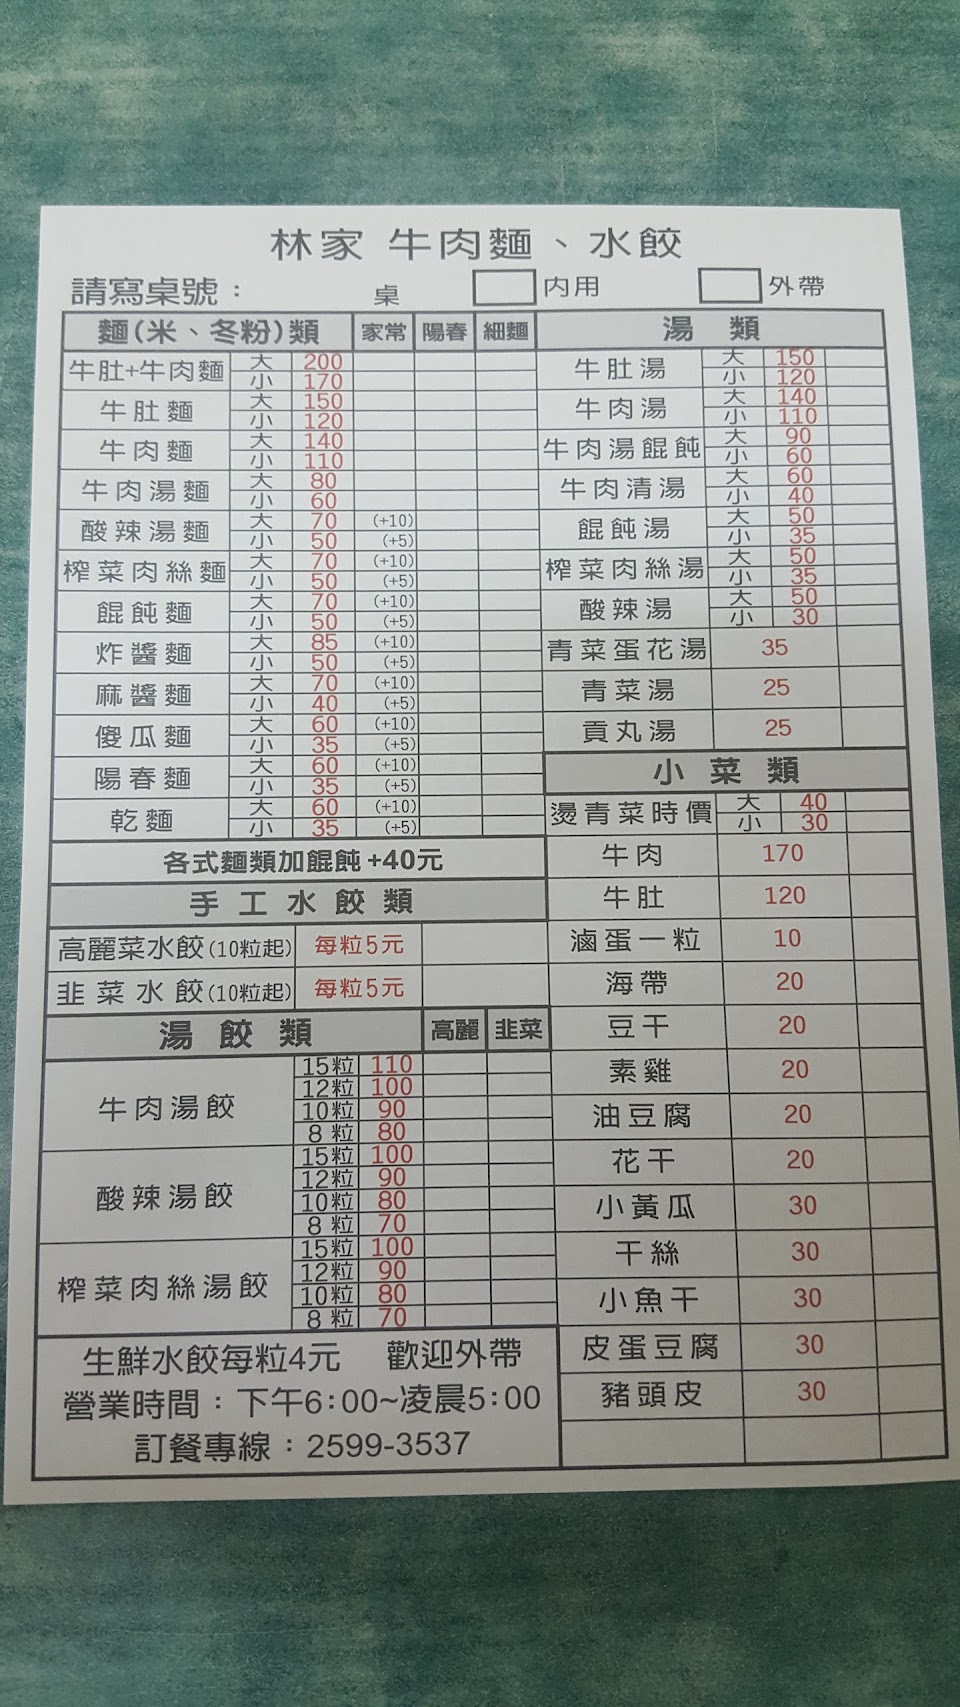 林家 牛肉麵、水餃
請寫桌號： 桌 内用 外帶
麵(米、冬粉)類 家常 陽春 細麵
牛肚+牛肉麵 大 200
小 170
牛肚麵 大 150
小 120
牛肉麵 大 140
小 110
牛肉湯麵 大 80
小 60
酸辣湯麵 大 70 (+10)
小 50 (+5)
榨菜肉絲麵 大 70 (+10)
小 50 (+5)
餛飩麵 大 70 (+10)
小 50 (+5)
炸醬麵 大 85 (+10)
小 50 (+5)
麻醬麵 大 70 (+10)
小 40 (+5)
傻瓜麵 大 60 (+10)
小 35 (+5)
陽春麵 大 60 (+10)
小 35 (+5)
乾麵 大 60 (+10)
小 35 (+5)
各式麵類加餛飩+40元
手工水餃類
高麗菜水餃(10粒起) 每粒5元
韭菜水餃(10粒起) 每粒5元
湯餃類 高麗 韭菜
牛肉湯餃 15粒 110
12粒 100
10粒 90
8粒 80
酸辣湯餃 15粒 100
12粒 90
10粒 80
8粒 70
榨菜肉絲湯餃 15粒 100
12粒 90
10粒 80
8粒 70
生鮮水餃每粒4元 歡迎外帶
營業時間：下午6:00~凌晨5:00
訂餐專線：2599-3537
湯類
牛肚湯 大 150
小 120
牛肉湯 大 140
小 110
牛肉湯餛飩 大 90
小 60
牛肉清湯 大 60
小 40
餛飩湯 大 50
小 35
榨菜肉絲湯 大 50
小 35
酸辣湯 大 50
小 30
青菜蛋花湯 35
青菜湯 25
貢丸湯 25
小菜類
燙青菜時價 大 40
小 30
牛肉 170
牛肚 120
滷蛋一粒 10
海帶 20
豆干 20
素雞 20
油豆腐 20
花干 20
小黃瓜 30
干絲 30
小魚干 30
皮蛋豆腐 30
豬頭皮 30